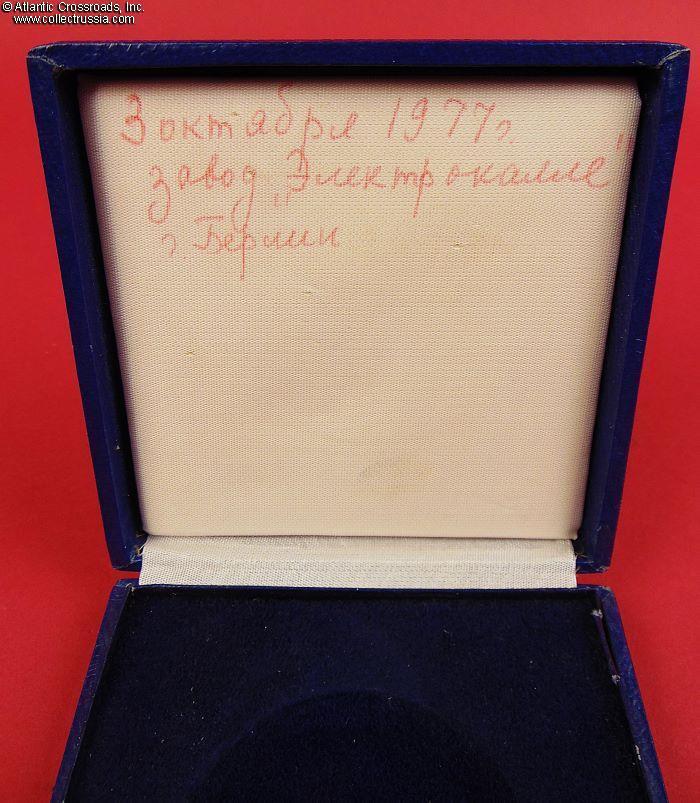 © Atlantic Crossroads, Inc.
www.collectrussia.com
3 октября 1977 г.
завод „Электрокалие"
г. Берлин